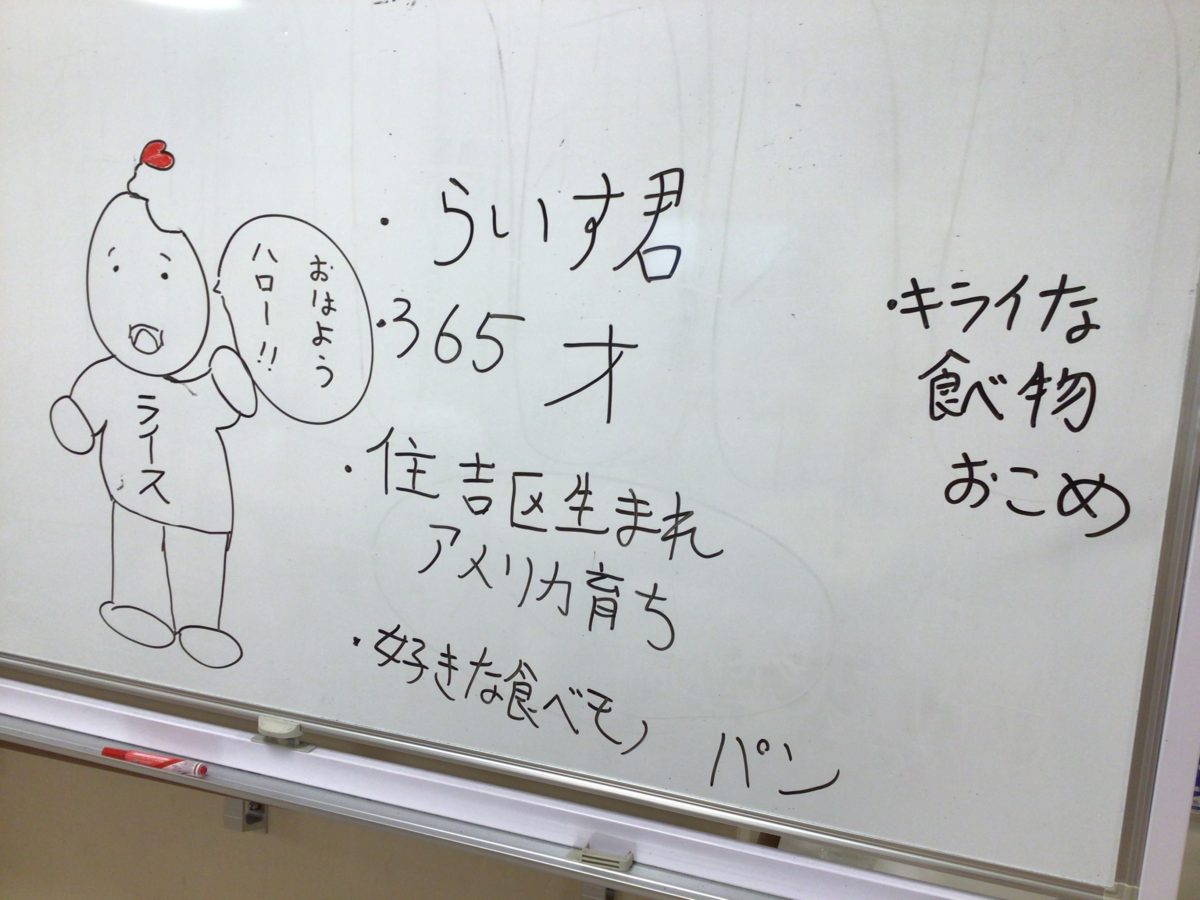 おはよう
ハロー!!
ライス
・らいす君
・365才
・住吉区生まれ
アメリカ育ち
・好きな食べモノ パン
・キライな
食べ物
おこめ